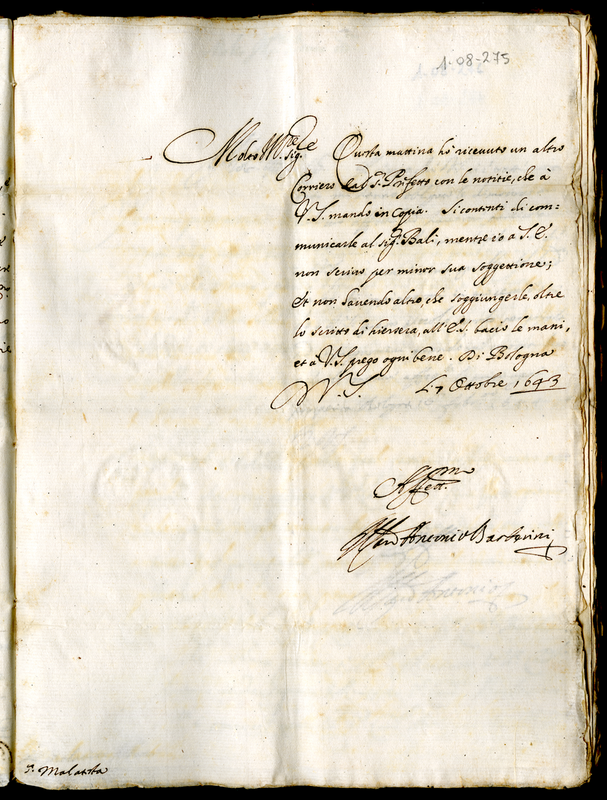 1-08-275
Molto Mag.ce Sig.re Questa mattina hò ricevuto un altro
Corriero dal S.r Prefetto con le notitie, che à
V.S. mando in copia. Si contenti di com-
municarle al sig.r Bali, mentre io a S.E.
non scrivo per minor sua soggettione;
Et non havendo altro, che soggiungerle, oltre
lo scritto di hiersera, all'E.S. bacio le mani,
et à V.S. prego ogni bene. Di Bologna
D V.S. Li 7 Ottobre 1643
Aff.mo
Antonio Barberini
S. Malatesta